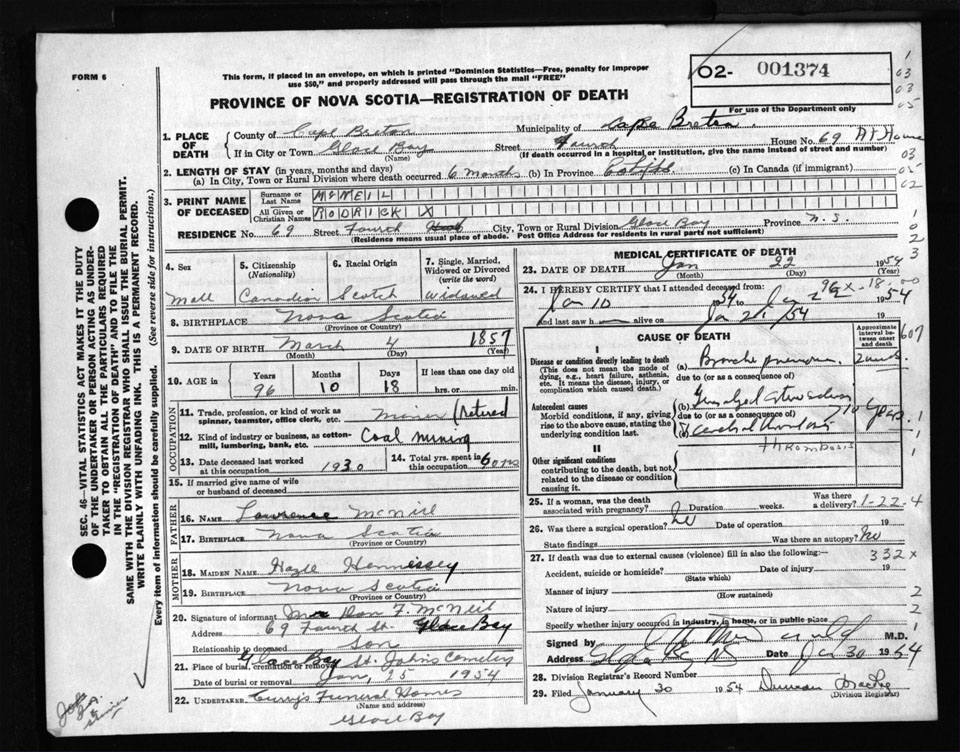 FORM 6
This form, if placed in an envelope, on which is printed "Dominion Statistics—Free, penalty for improper
use $50," and properly addressed will pass through the mail "FREE"
O2- 001374
PROVINCE OF NOVA SCOTIA—REGISTRATION OF DEATH
For use of the Department only
1. PLACE OF DEATH
County of Cape Breton Municipality of Cape Breton
If in City or Town Glace Bay Street Fourth House No. 69 At House
(Name) (If death occurred in a hospital or institution, give the name instead of street and number)
2. LENGTH OF STAY (in years, months and days)
(a) In City, Town or Rural Division where death occurred 6 months (b) In Province (c) In Canada (if immigrant)
3. PRINT NAME OF DECEASED
Surname or Last Name McNEIL
All Given or Christian Names RODRICK X
RESIDENCE No. 69 Street Fourth City, Town or Rural Division Glace Bay Province N.S.
(Residence means usual place of abode. Post Office Address for residents in rural parts not sufficient)
4. Sex
Male
5. Citizenship (Nationality)
Canadian
6. Racial Origin
Scotch
7. Single, Married, Widowed or Divorced (write the word)
Widowed
8. BIRTHPLACE Nova Scotia
(Province or Country)
9. DATE OF BIRTH March 4 1857
(Month) (Day) (Year)
10. AGE in Years Months Days If less than one day old
96 10 18 hrs. or min.
OCCUPATION
11. Trade, profession, or kind of work as spinner, teamster, office clerk, etc. Miner (retired
12. Kind of industry or business, as cotton-mill, lumbering, bank, etc. Coal mining
13. Date deceased last worked at this occupation 1930
14. Total yrs. spent in this occupation 60 yrs
15. If married give name of wife or husband of deceased
FATHER
16. NAME Lawrence McNeil
17. BIRTHPLACE Nova Scotia
(Province or Country)
MOTHER
18. MAIDEN NAME Hennessey
19. BIRTHPLACE Nova Scotia
(Province or Country)
20. Signature of informant Dan F. McNeil
Address 69 Fourth St. Glace Bay
Relationship to deceased Son
21. Place of burial, cremation or removal Glace Bay St. John's Cemetery
Date of burial or removal Jan, 25 1954
22. UNDERTAKER Curry's Funeral Homes
(Name and address)
Glace Bay
MEDICAL CERTIFICATE OF DEATH
23. DATE OF DEATH Jan 22 1954
(Month) (Day) (Year)
24. I HEREBY CERTIFY that I attended deceased from:
Jan 10 1954 to 1954
and last saw h alive on Jan 21 /54
CAUSE OF DEATH
Approximate interval between onset and death
I
Disease or condition directly leading to death
(This does not mean the mode of dying, e.g., heart failure, asthenia, etc. It means the disease, injury, or complication which caused death.)
(a) Broncho pneumonia
due to (or as a consequence of)
Antecedent causes
Morbid conditions, if any, giving rise to the above cause, stating the underlying condition last.
(b) Generalized
due to (or as a consequence of)
Cerebral
THROMBOSIS
II
Other significant conditions
contributing to the death, but not related to the disease or condition causing it.
25. If a woman, was the death associated with pregnancy? Duration weeks. Was there a delivery?
1-22-4
26. Was there a surgical operation? Date of operation 19
State findings Was there an autopsy? No
27. If death was due to external causes (violence) fill in also the following:— 332x
Accident, suicide or homicide? Date of injury 19
(State which)
Manner of injury
(How sustained)
Nature of injury
Specify whether injury occurred in industry, in home, or in public place
Signed by M.D.
Address Date Jan 30 1954
28. Division Registrar's Record Number
29. Filed January 30 1954 Duncan
(Division Registrar)
SEC. 46—VITAL STATISTICS ACT MAKES IT THE DUTY
OF THE UNDERTAKER OR PERSON ACTING AS UNDER-
TAKER TO OBTAIN ALL THE PARTICULARS REQUIRED
IN THE "REGISTRATION OF DEATH" AND TO FILE THE
SAME WITH THE DIVISION REGISTRAR WHO SHALL ISSUE THE BURIAL PERMIT.
WRITE PLAINLY WITH UNFADING INK. THIS IS A PERMANENT RECORD.
Every item of information should be carefully supplied. (See reverse side for instructions.)